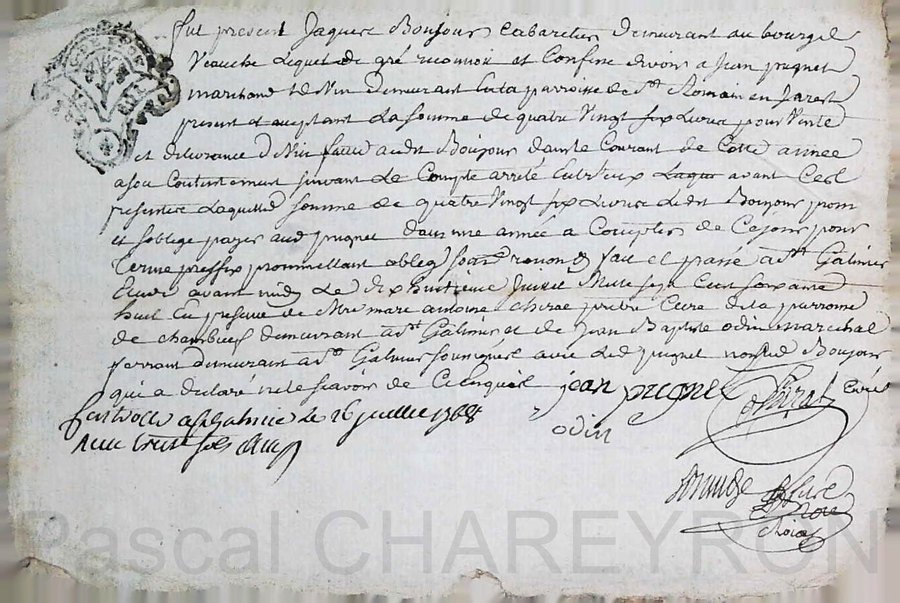 fut present Jaques Boujour Cabaretier demeurant au bourg de
Veauche Lequel de gré reconnoit et Confesse devoir a Jean pugnet
marchand de Vin demeurant en la parroisse de St Romain en Jarest
present et acceptant La somme de quatre Vingt six Livres pour Vente
et delivrance de Vin faitte audit Boujour dans le Courant de Cette année
a son Contentement suivant Le Compte arrêté entr'eux avant Ces
presentes Laquelle somme de quatre Vingt six Livres Ledit Boujour promet
et soblige payer aud pugnet dans une année a Compter de Ce jour pour
terme preffix promettant oblig renon fait et passé a St Galmier
Etude avant midy Le dix huitieme Juin Mille sept Cent soixante
huit En presence de Mre marc antoine chirat prêtre Curé de la parroisse
de chambœuf demeurant a St Galmier et de Jean Baptiste odin marechal
ferrant demeurant a St Galmier soussignés avec Led pugnet non led Boujour
qui a declaré ne le sçavoir de Ce Enquis jean pugnet Chirat Curé
Controllé a St Galmier le 26 juillet 1768
Reçu treize sols
odin